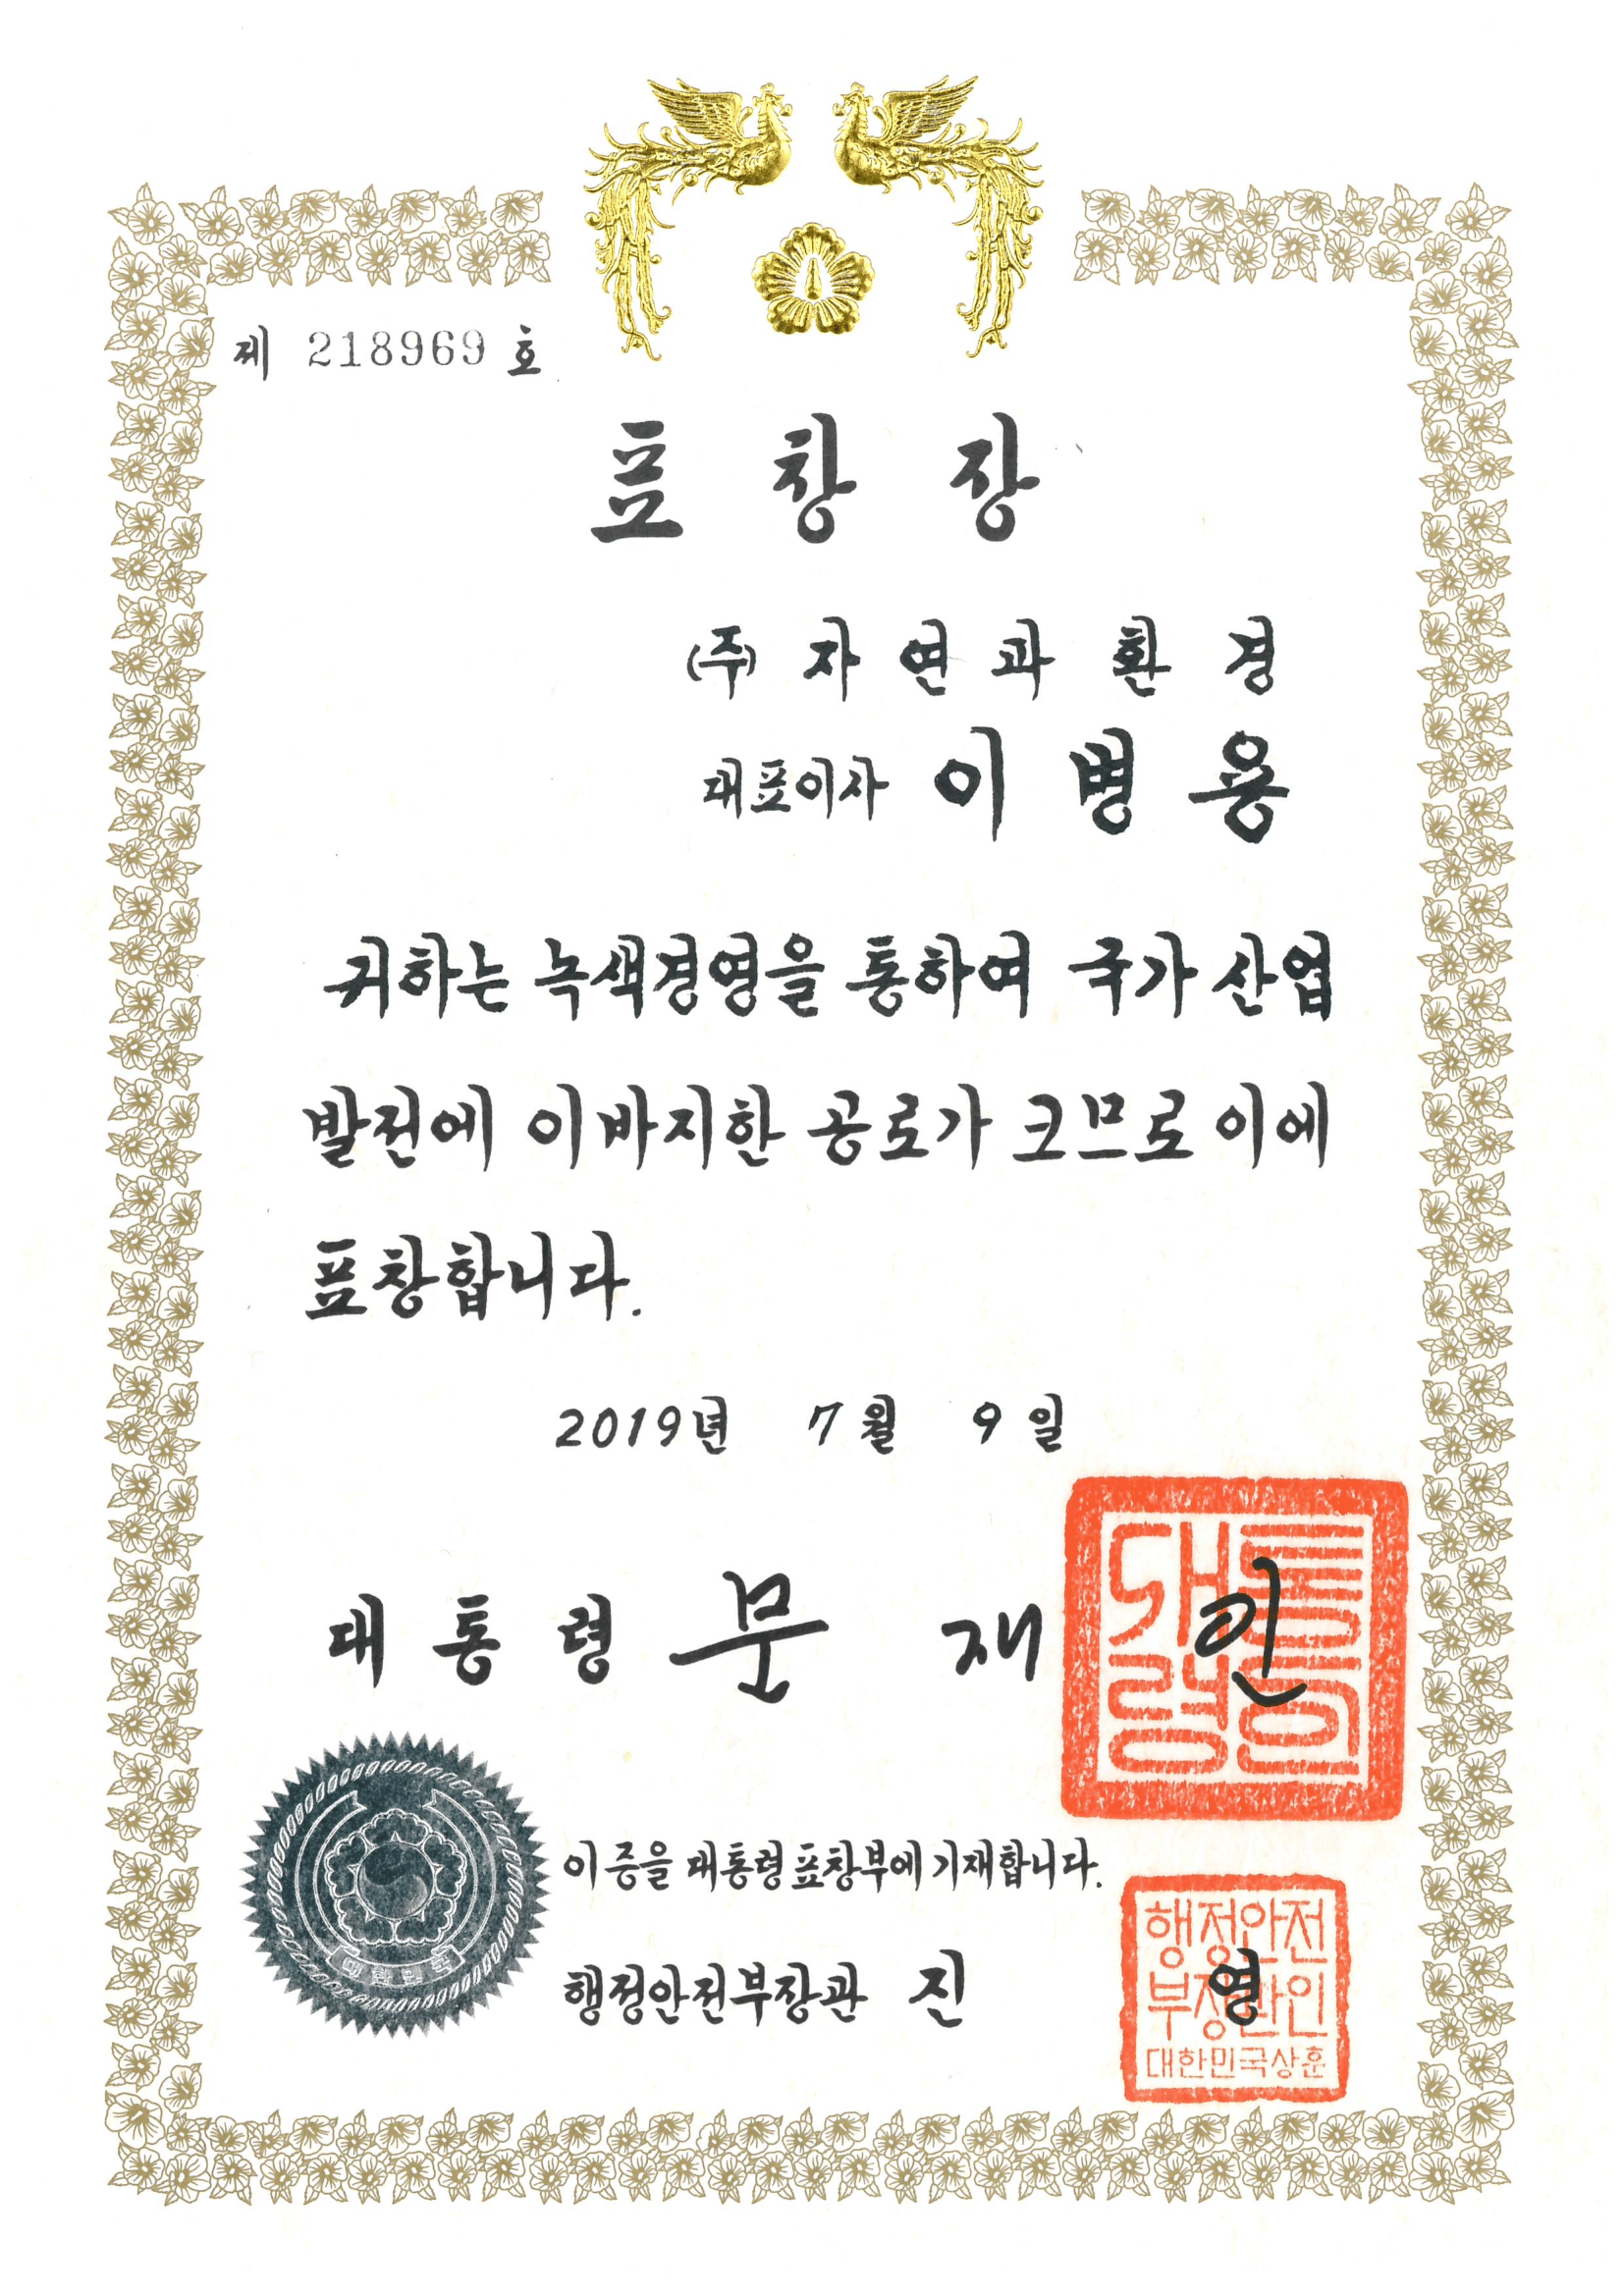 제 218969 호
표 창 장
(주) 자 연 과 환 경
대표이사 이 병 용
귀하는 녹색경영을 통하여 국가 산업
발전에 이바지한 공로가 크므로 이에
표창합니다.
2019년 7월 9일
대 통 령 문 재 인
대통령의인
이 증을 대통령 표창부에 기재합니다.
행정안전부장관 진 영
행정안전
부장관인
대한민국상훈
대한민국